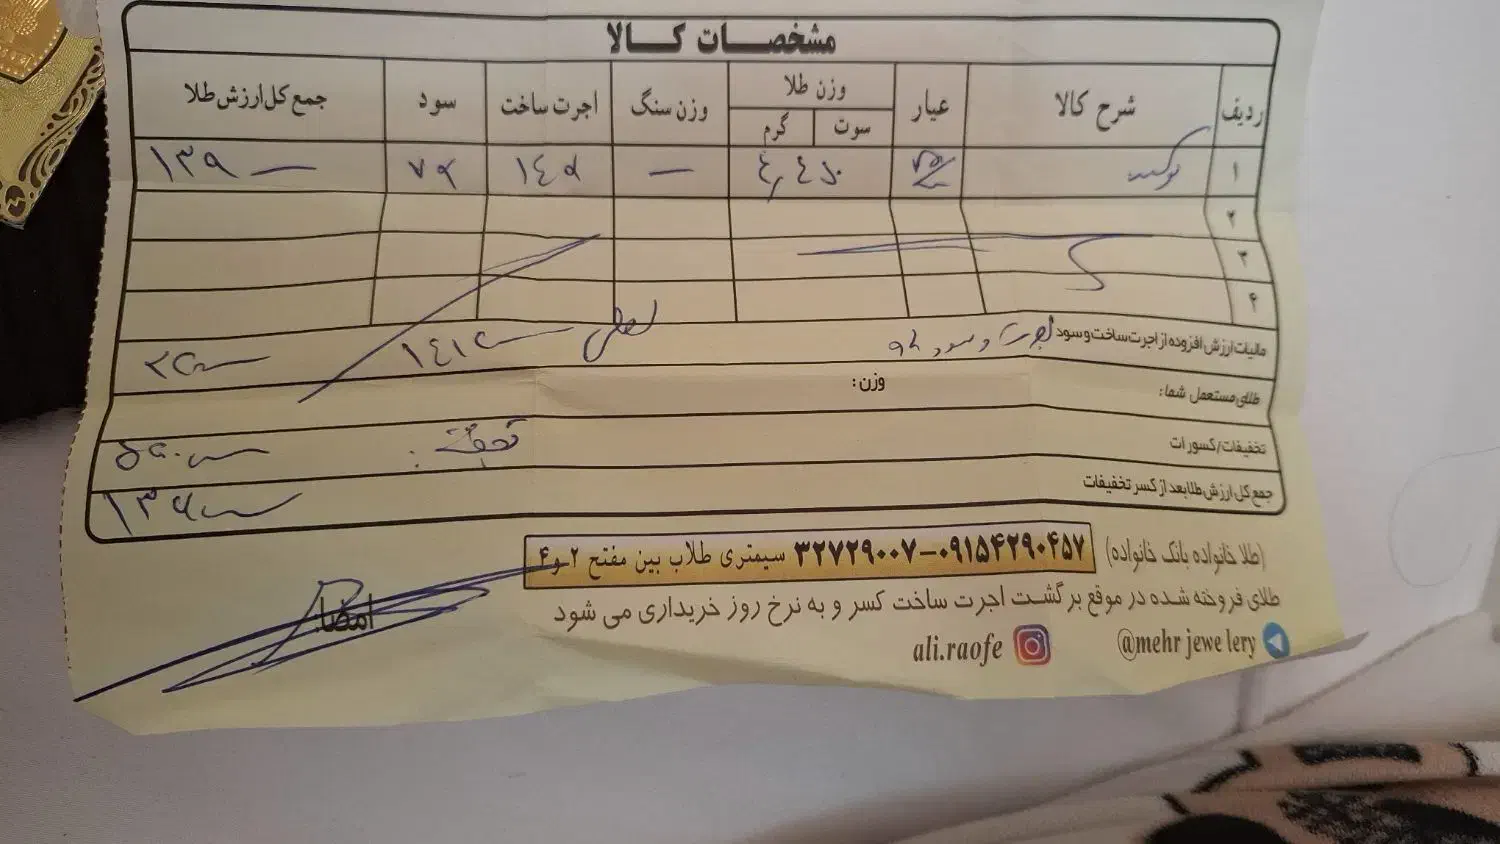 مشخصات کالا
ردیف شرح کالا عیار وزن طلا وزن سنگ اجرت ساخت سود جمع کل ارزش طلا
سوت گرم
۱ — ۱۴۵ ۷۵ ۱۳۹
۲
۳
۴
مالیات ارزش افزوده از اجرت ساخت و سود
طلای مستعمل شما: وزن:
تخفیفات/کسورات تخفیف:
جمع کل ارزش طلا بعد از کسر تخفیفات
(طلا خانواده بانک خانواده) ۰۹۱۵۴۲۹۰۴۵۷-۳۲۷۲۹۰۰۷ سیمتری طلاب بین مفتح ۲ و ۴
طلای فروخته شده در موقع برگشت اجرت ساخت کسر و به نرخ روز خریداری می شود
@mehr jewe lery ali.raofe
امضاء